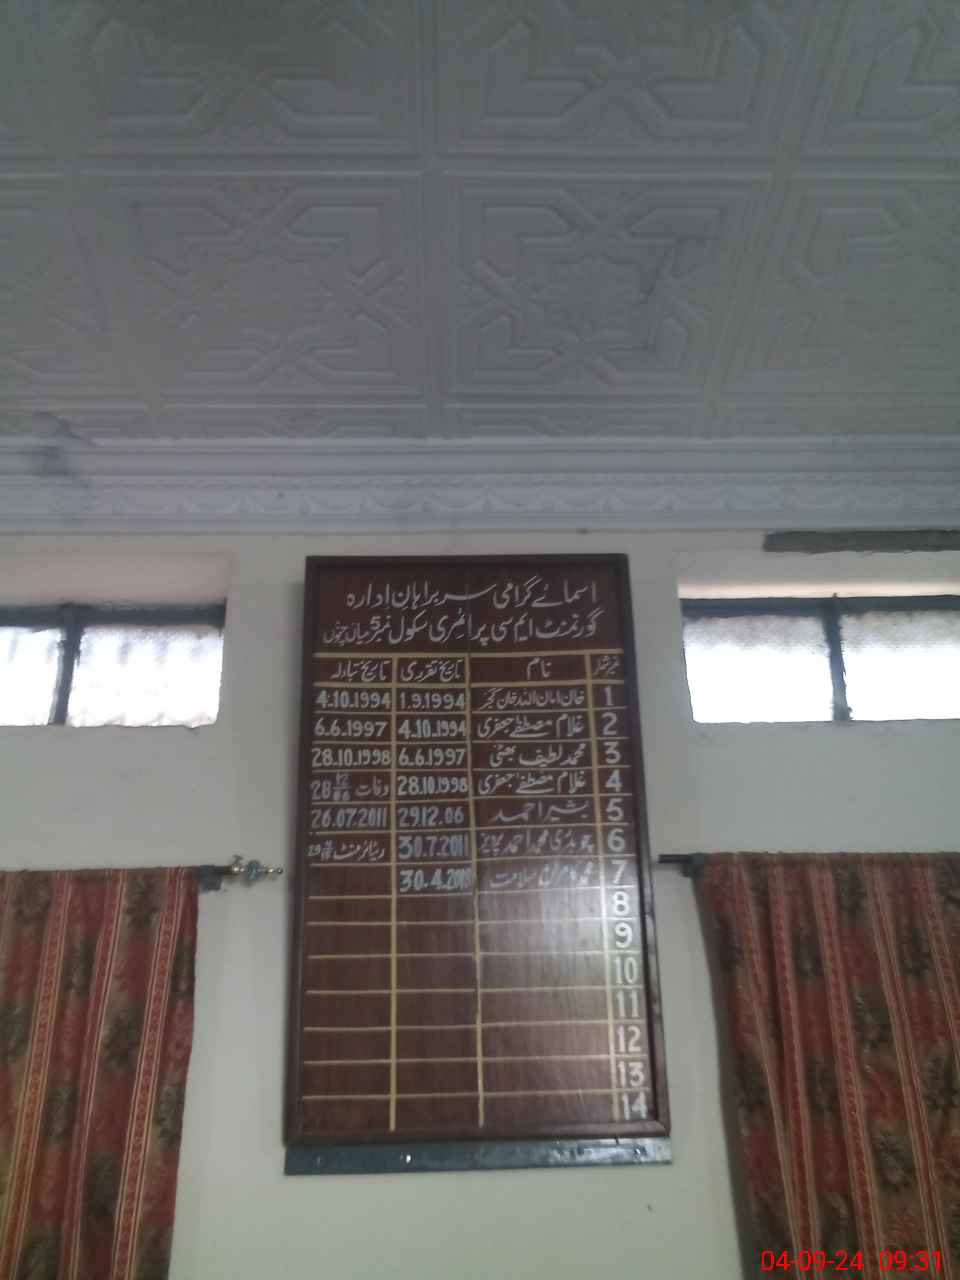 اسمائے گرامی سربراہان ادارہ
گورنمنٹ ایم سی پرائمری سکول نمبر5 میاں چنوں
نمبر شمار نام تاریخ تقرری تاریخ تبادلہ
1 خان امان اللہ خان 1.9.1994 4.10.1994
2 غلام مصطفےٰ جعفری 4.10.1994 6.6.1997
3 محمد لطیف بھٹی 6.6.1997 28.10.1998
4 غلام مصطفےٰ جعفری 28.10.1998 وفات 28 12/06
5 بشیر احمد 29.12.06 26.07.2011
6 چوہدری محمد احمد 30.7.2011 ریٹائرمنٹ
7 محمد سلامت 30.4.2019
8
9
10
11
12
13
14
04-09-24 09:31